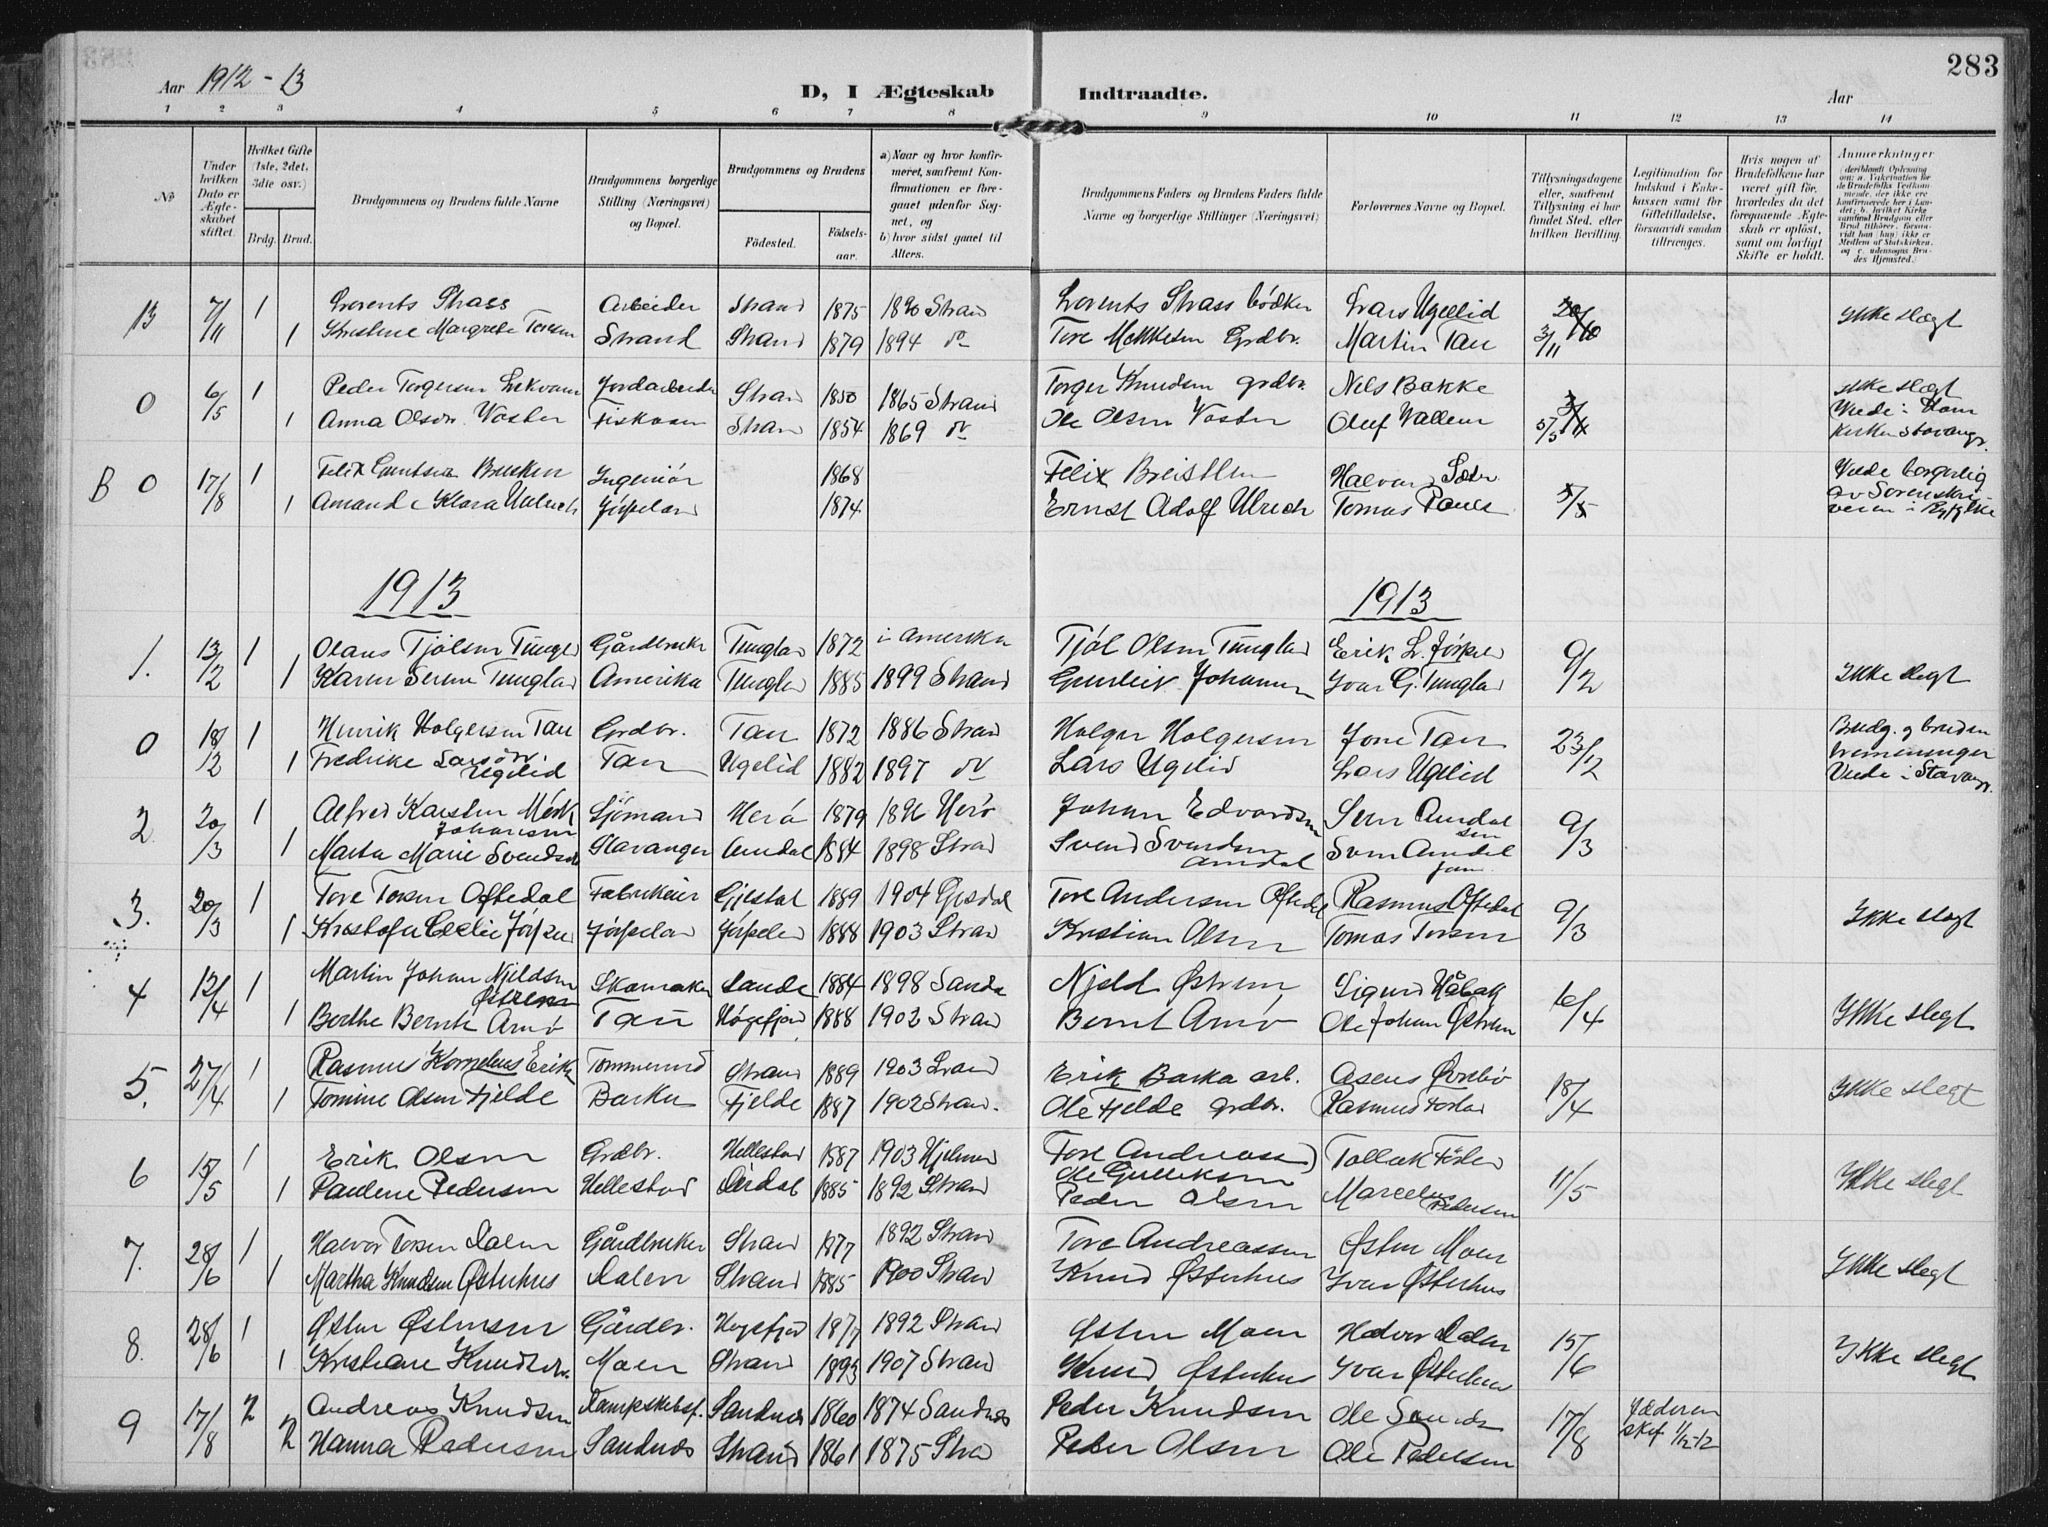 283
Aar 1912 - 13
D, I Ægteskab Indtraadte.
Aar
1 2 3 4 5 6 7 8 9 10 11 12 13 14
No
Under hvilken Dato er Ægteskabet stiftet.
Hvilket Gifte (1ste, 2det, 3die osv.)
Brdg. Brud.
Brudgommens og Brudens fulde Navne
Brudgommens borgerlige Stilling (Næringsvei) og Bopæl.
Brudgommens og Brudens
Födested. Födsels-aar.
a) Naar og hvor konfirmeret, saafremt Konfirmationen er foregaaet udenfor Sognet, og
b) hvor sidst gaaet til Alters.
Brudgommens Faders og Brudens Faders fulde Navne og borgerlige Stillinger (Næringsvei)
Forlovernes Navne og Bopæl.
Tillysningsdagene eller, saafremt Tillysning ei har fundet Sted, efter hvilken Bevilling.
Legitimation for Indskud i Enkekassen samt for Giftetilladelse, forsaavidt saadan tiltrænges.
Hvis nogen af Brudefolkene har været gift för, hvorledes da det foregaaende Ægteskab er oplöst, samt om lovligt Skifte er holdt.
Anmerkninger
13 7/11 1 Lorents Strass Arbeider Strand 1875 1890 Strand Lorents Strass bödker Lars Ugelid Ikke slægt
Kristine Margrete Toresen 1 Strand Strand 1879 1894 do Tore Grdbr. Martin Tau 3/11
0 6/5 1 Peder Torgersen Jordarbeider Strand 1850 1865 Strand Torger Knudsen grdbr. Nels Bakke ikke slegt
1 Anna Olsdr. Fiskaaen Strand 1854 1869 do Ole Olsen Oluf Vallem Viede i Dom kirken Stavanger
B 0 17/8 1 Felix Ingeniör 1868 Felix Halvar Viede borgerlig
1 Amanda Klara Ulrich Jörpeland 1874 Ernst Adolf Ulrich Tomas av Sorenskriveren i Ryfylke
1913 1913
1. 13/2 1 Olaus Tjölsen Tungland Gårdbruker Tungland 1872 i Amerika Tjöl Olsen Tungland Erik L. Jørpeland 9/2
1 Karen Serine Tungland Amerika Tungland 1885 1899 Strand Gunleik Johannesen Ivar G. Tungland Ikke slegt
0 18/2 1 Henrik Holgersen Tau Grdbr. Tau 1872 1886 Strand Holger Holgersen Jone Tau 23/2 Brudg. og bruden
1 Fredrike Larsdtr. Ugelid Tau Ugelid 1882 1897 do Lars Ugelid Lars Ugelid Viede i Stavanger
2 20/3 1 Alfred Karsten Mörk Johansen Sjömand Herö 1879 1896 Herö Johan Edvardsen Sven Amdal sen 9/3
1 Marta Marie Svendsen Stavanger Amdal 1884 1898 Strand Svend Svendsen Amdal Sven Amdal jun
3. 20/3 1 Tore Toresen Oftedal Fabrikeier Gjesdal 1889 1904 Gjesdal Tore Andersen Oftedal Rasmus Oftedal 9/3
1 Kristofa Cecilie Jörpeland Jörpeland Jörpeland 1888 1903 Strand Kristian Olsen Tomas Toresen Ikke slegt
4 12/4 1 Martin Johan Njeldsen Østrem Skomaker Sande 1884 1898 Sande Njeld Østrem Sigurd Håbak 6/4
1 Berthe Bernt Arnö Tau Høgsfjord 1888 1902 Strand Bernt Arnö Ole Johan Østrem Ikke slegt
5. 27/4 1 Rasmus Kornelius Eriksen Tömmermd Strand 1889 1903 Strand Erik Barka arb. Asens Övrebö 18/4
1 Tomine Olsen Fjelde Barka Fjelde 1887 1902 Strand. Ole Fjelde grdbr. Rasmus Ikke slegt
6 15/5 1 Erik Olsen Grdbr. Hellestad 1887 1903 Hjelme Tore Andreass) Ole Gulliksen Tollak 11/5
1 Pauline Pedersen Hellestad Dirdal 1885 1892 Strand Peder Olsen Marcelius Pedersen Ikke slegt
7. 28/6 1 Halvor Toresen Dalen Gårdbruker Strand 1877 1892 Strand Tore Andreassen Østen Moen
1 Martha Knudsen Østerhus Dalen Strand 1885 1900 Strand Knud Østerhus Ivar Østerhus Ikke slegt
8. 28/6 1 Østen Østensen Gårdbr. Høgsfjord 1877 1892 Strand Østen Moen Halvor Dalen 15/6
1 Kristiane Knudsen Moen Strand 1893 1907 Strand Knud Østerhus Ivar Østerhus Ikke slegt
9 17/8 2 Andreas Knudsen Dampskibsf. Sandnes 1860 1874 Sandnes Peder Knudsen Ole 17/8 Jæderen skif 1/12-12
2 Hanna Pedersen Sandnes Strand 1861 1875 Strand Peder Olsen Ole Pedersen